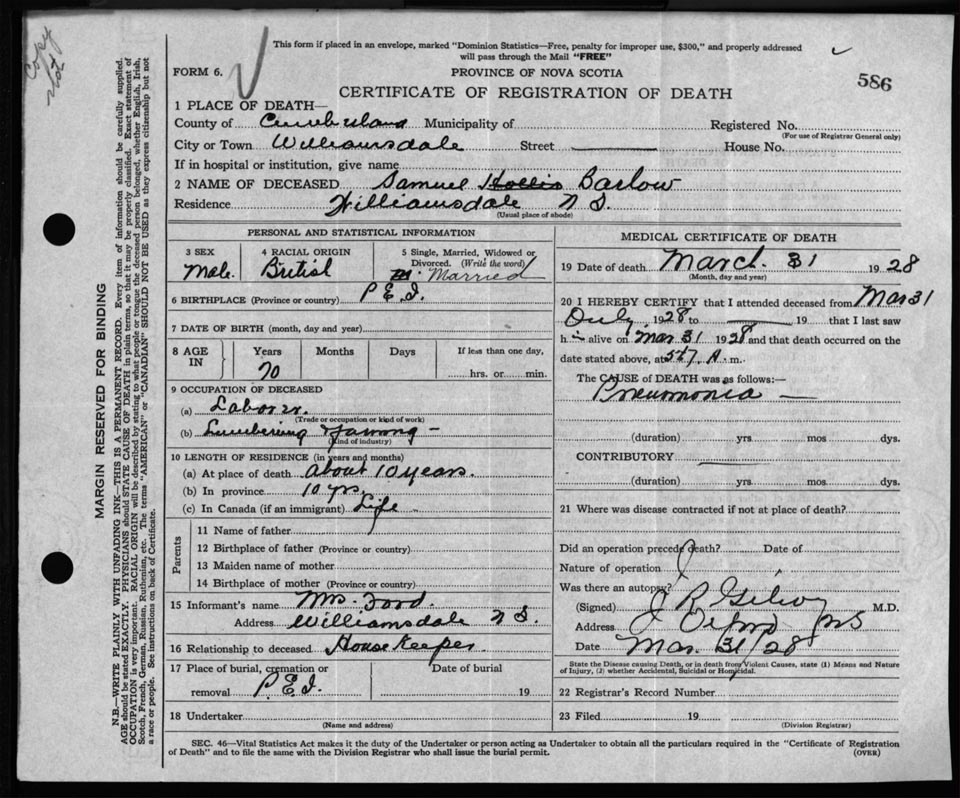 Copy
This form if placed in an envelope, marked "Dominion Statistics—Free, penalty for improper use, $300," and properly addressed
will pass through the Mail "FREE"
586
FORM 6.
PROVINCE OF NOVA SCOTIA
CERTIFICATE OF REGISTRATION OF DEATH
1 PLACE OF DEATH—
County of Cumberland Municipality of Registered No.
(For use of Registrar General only)
City or Town Williamsdale Street House No.
If in hospital or institution, give name
2 NAME OF DECEASED Samuel Hollis Barlow
Residence Williamsdale N S.
(Usual place of abode)
PERSONAL AND STATISTICAL INFORMATION
3 SEX
Male.
4 RACIAL ORIGIN
British
5 Single, Married, Widowed or
Divorced. (Write the word)
Married
6 BIRTHPLACE (Province or country) P E I.
7 DATE OF BIRTH (month, day and year)
8 AGE IN
Years Months Days If less than one day,
70 hrs. or min.
9 OCCUPATION OF DECEASED
(a) Laborer.
(Trade or occupation or kind of work)
(b) Lumbering Farming -
(Kind of industry)
10 LENGTH OF RESIDENCE (in years and months)
(a) At place of death about 10 years.
(b) In province 10 yrs.
(c) In Canada (if an immigrant) Life
Parents
11 Name of father
12 Birthplace of father (Province or country)
13 Maiden name of mother
14 Birthplace of mother (Province or country)
15 Informant's name Mrs. Ford.
Address Williamsdale N S.
16 Relationship to deceased House Keeper
17 Place of burial, cremation or Date of burial
removal P.E.I. 19
18 Undertaker
(Name and address)
MEDICAL CERTIFICATE OF DEATH
19 Date of death March. 31 1928
(Month, day and year)
20 I HEREBY CERTIFY that I attended deceased from Mar 31
Only, 1928 to 19 that I last saw
h alive on Mar 31 1928 and that death occurred on the
date stated above, at A. m.
The CAUSE of DEATH was as follows:—
Pneumonia —
(duration) yrs. mos dys.
CONTRIBUTORY
(duration) yrs. mos. dys.
21 Where was disease contracted if not at place of death?
Did an operation precede death? Date of
Nature of operation
Was there an autopsy?
(Signed) J R Gilroy M.D.
Address Oxford NS
Date Mar. 31/28
State the Disease causing Death, or in death from Violent Causes, state (1) Means and Nature
of Injury, (2) whether Accidental, Suicidal or Homicidal.
22 Registrar's Record Number
23 Filed 19
(Division Registrar)
SEC. 46—Vital Statistics Act makes it the duty of the Undertaker or person acting as Undertaker to obtain all the particulars required in the "Certificate of Registration
of Death" and to file the same with the Division Registrar who shall issue the burial permit. (OVER)
MARGIN RESERVED FOR BINDING
N.B.—WRITE PLAINLY WITH UNFADING INK—THIS IS A PERMANENT RECORD. Every item of information should be carefully supplied.
AGE should be stated EXACTLY. PHYSICIANS should STATE CAUSE OF DEATH in plain terms, so that it may be properly classified. Exact statement of
OCCUPATION is very important. RACIAL ORIGIN will be described by stating to what people or tongue the deceased person belonged, whether English, Irish,
Scotch, French, German, Russian, Ruthenian, etc. The terms "AMERICAN" or "CANADIAN" SHOULD NOT BE USED as they express citizenship but not
a race or people. See instructions on back of Certificate.